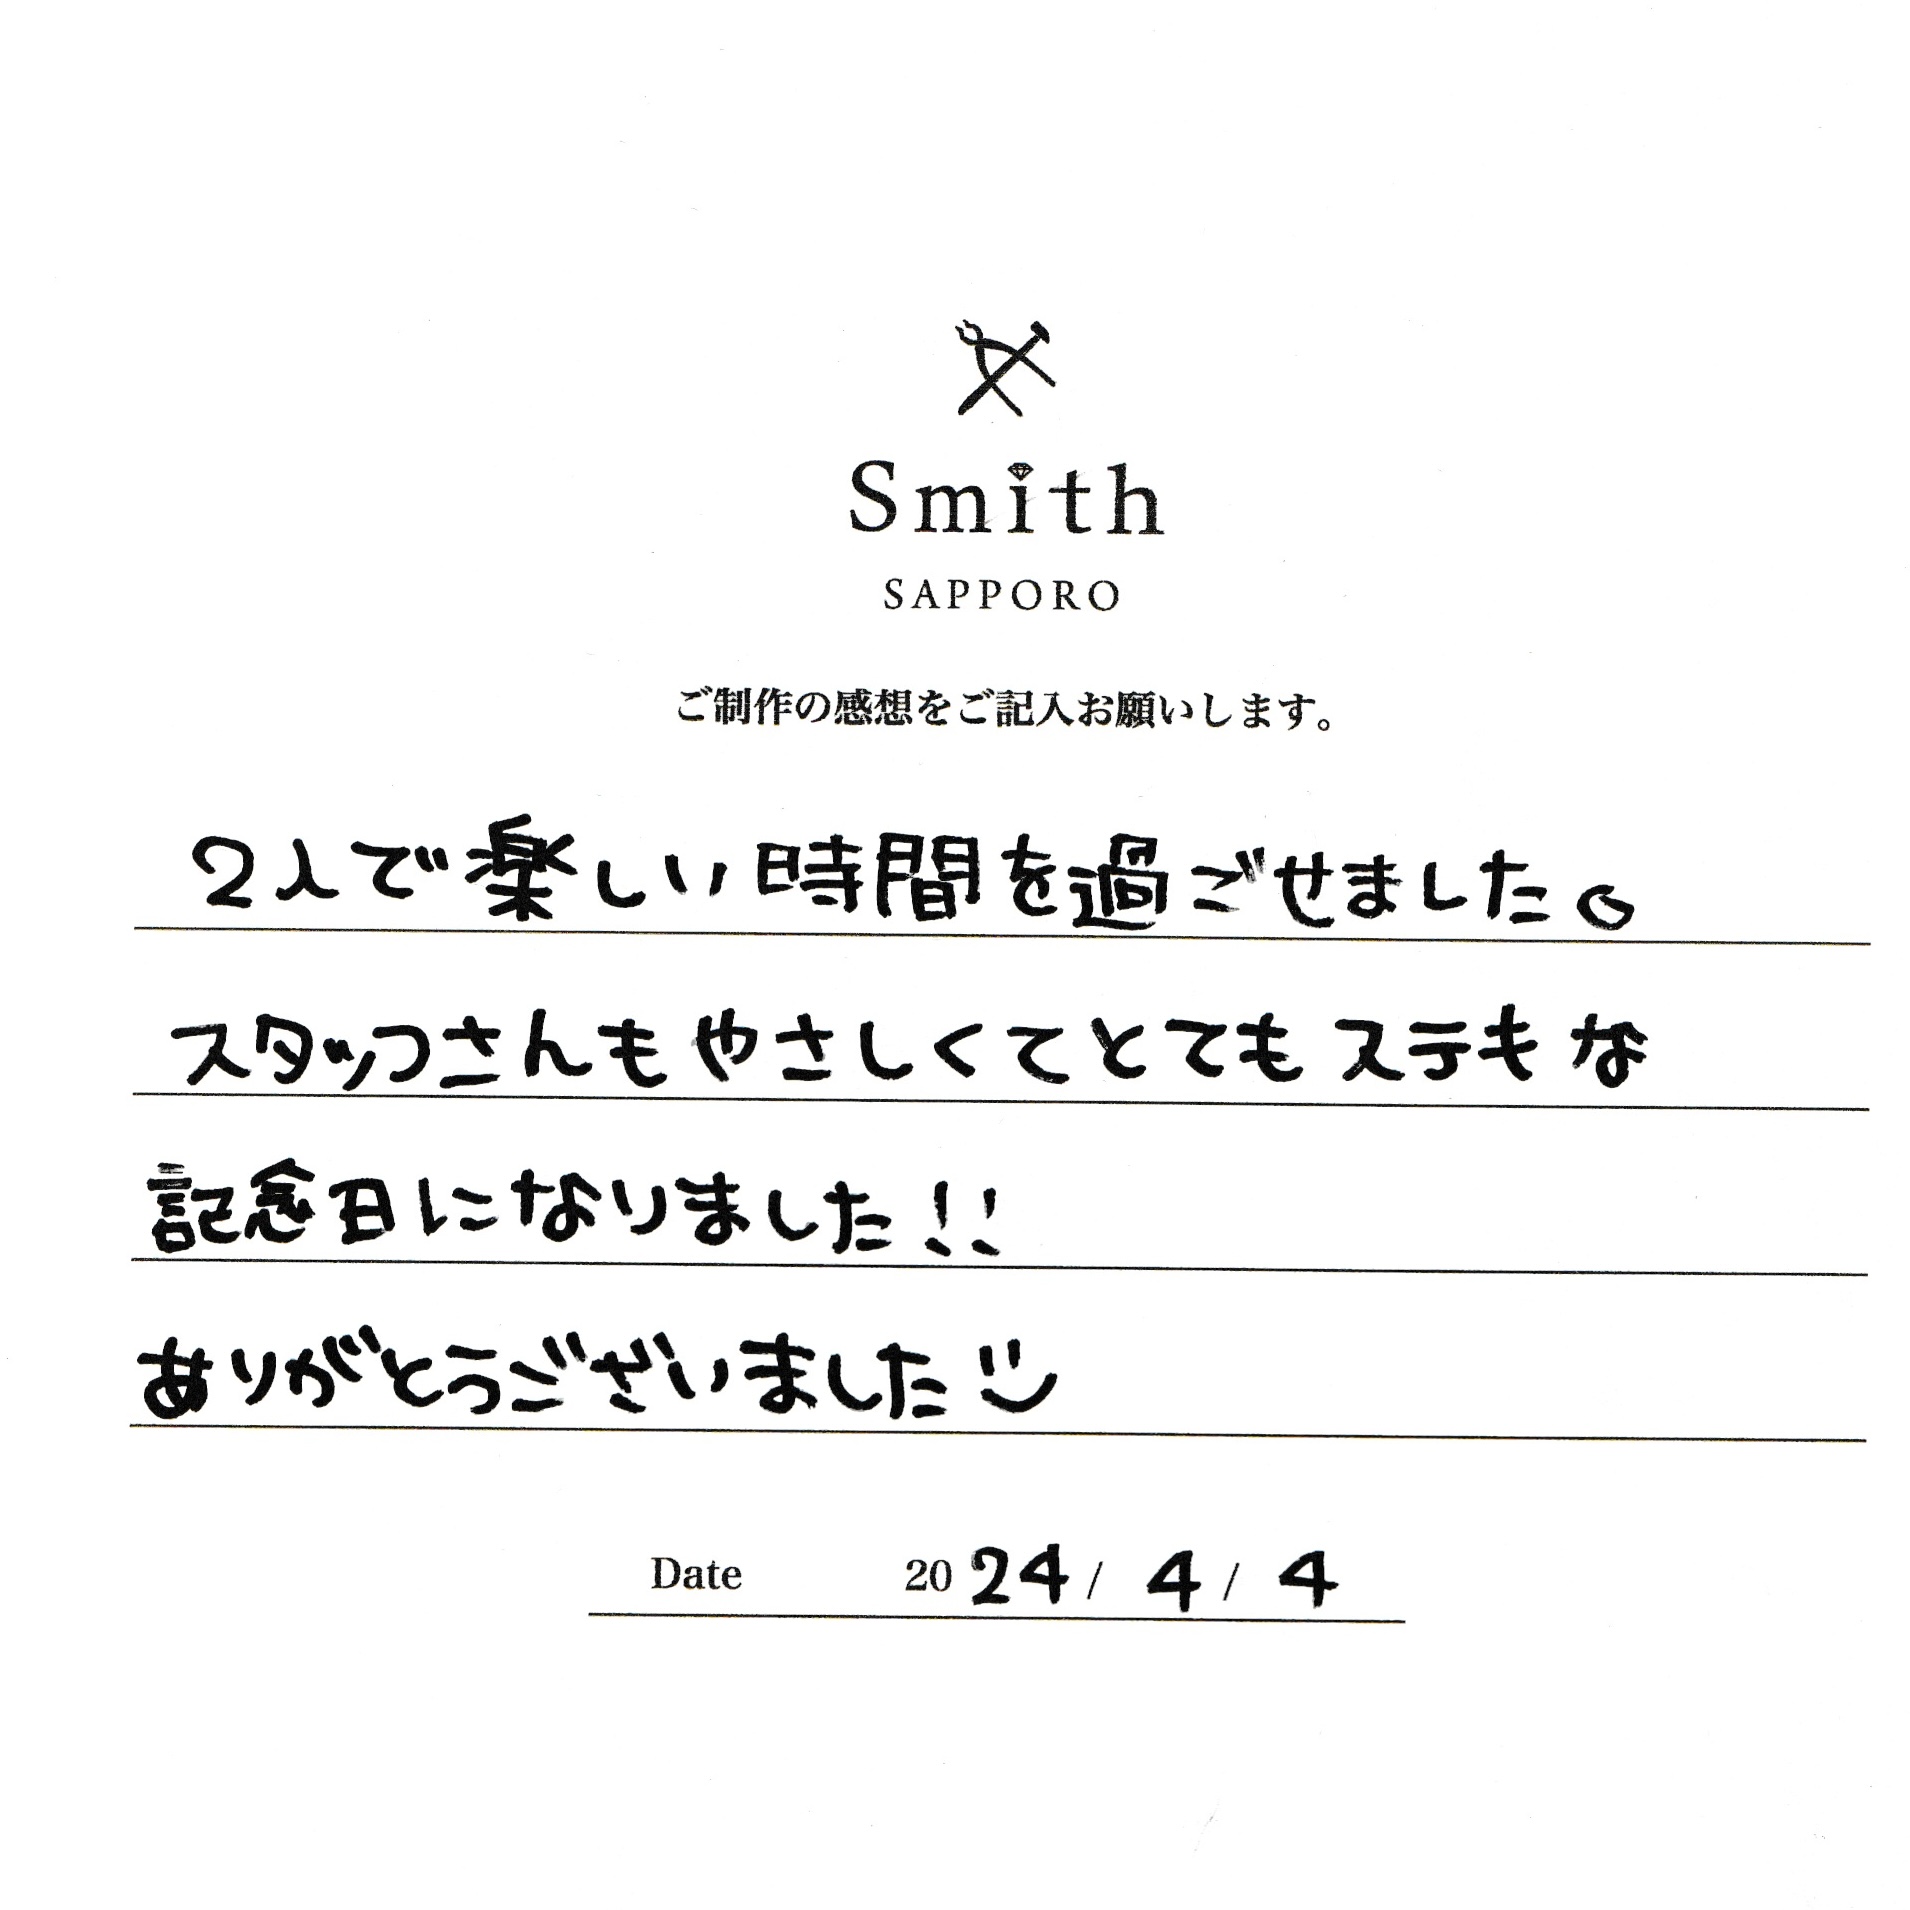 Smith
SAPPORO
ご制作の感想をご記入お願いします。
2人で楽しい時間を過ごせました。
スタッフさんもやさしくてとてもステキな
記念日になりました!!
ありがとうございました
Date 2024/4/4